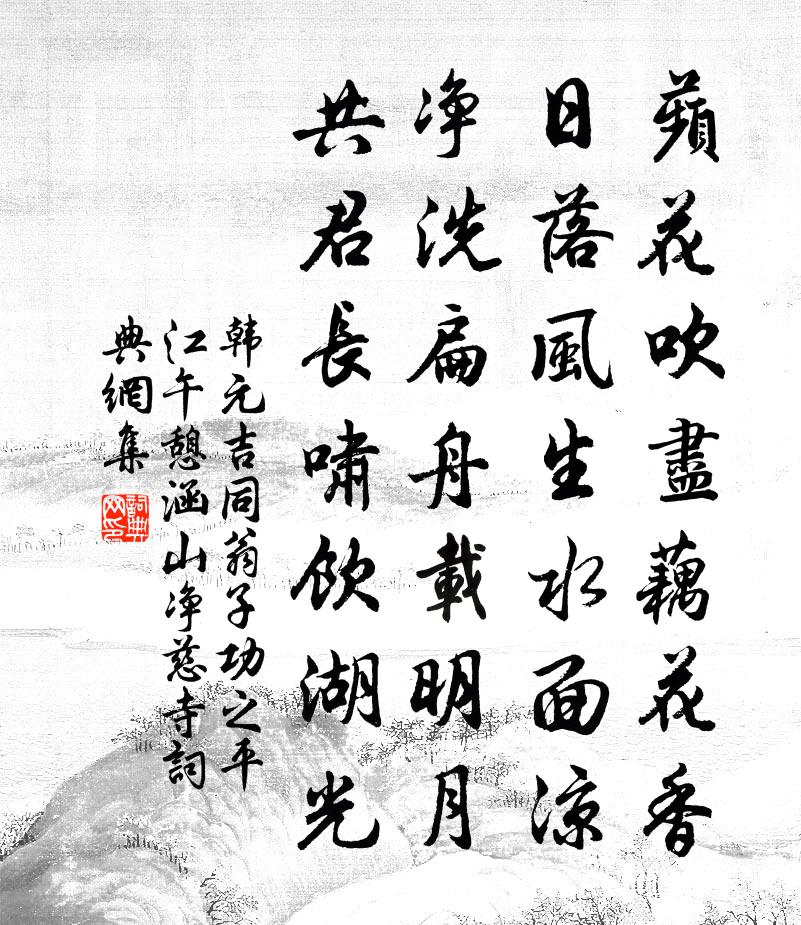 蘋花吹盡藕花香
日落風生水面涼
净洗扁舟載明月
共君長嘯飲湖光
韩元吉同翁子功之平
江午憩涵山净慈寺詞
典網集
詞典网印